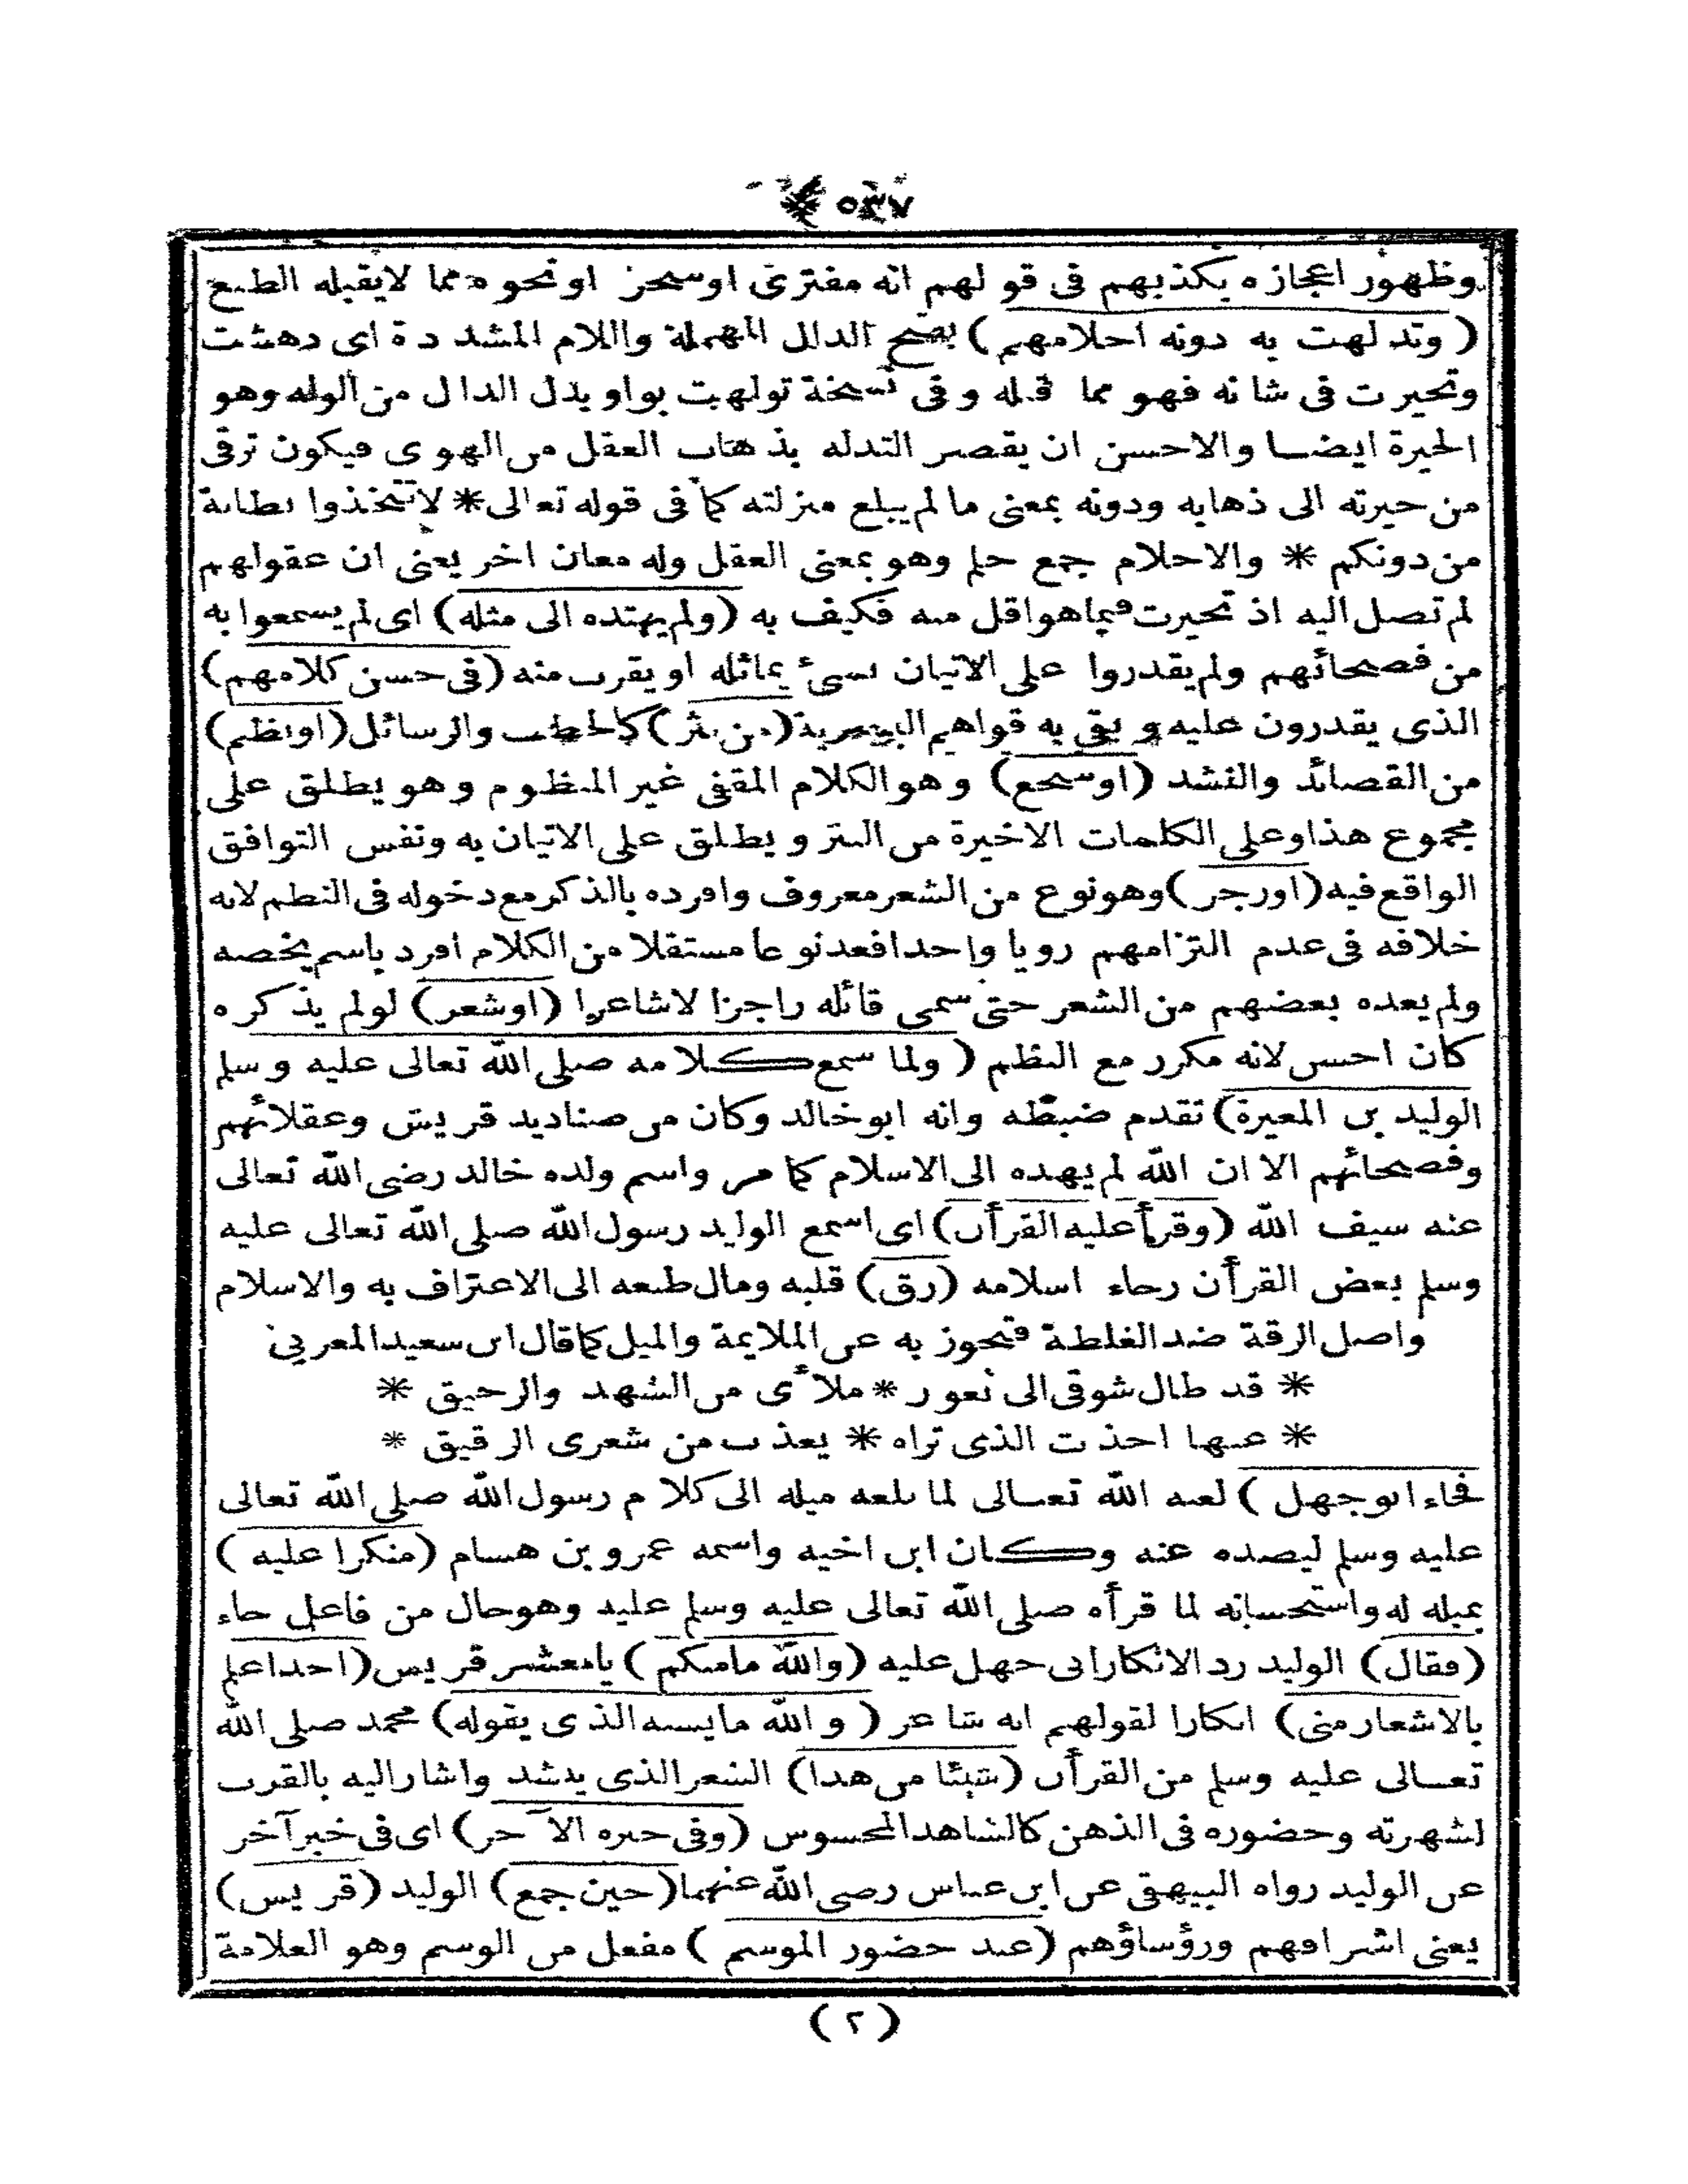 ٥٣٧
وظهور اعجازه بكذبهم فى قولهم انه مفترى اوسحر اونحوه مما لايقبله الطبع
(وتدلهت به دونه احلامهم) بفتح الدال المهملة واللام المشددة اى دهشت
وتحيرت فى شانه فهو مما قبله وفى نسخة تولهت بواو بدل الدال من الوله وهو
الحيرة ايضا والاحسن ان يقصر التدله بذهاب العقل من الهوى فيكون ترقى
من حيرته الى ذهابه ودونه بمعنى مالم يبلغ منزلته كما فى قوله تعالى * لاتتخذوا بطانة
من دونكم * والاحلام جمع حلم وهو بمعنى العقل وله معان اخر يعنى ان عقولهم
لم تصل اليه اذ تحيرت فيماهواقل منه فكيف به (ولم يهتده الى مثله) اى لم يسمعوا به
من فصحائهم ولم يقدروا على الاتيان بشئ يماثله او يقرب منه (فى حسن كلامهم)
الذى يقدرون عليه و يقى به قواهم البشرية (من نثر) كالخطب والرسائل (اونظم)
من القصائد والنشد (اوسجع) وهوالكلام المقفى غير المنظوم وهو يطلق على
مجموع هذا وعلى الكلمات الاخيرة من النثر و يطلق على الاتيان به ونفس التوافق
الواقع فيه (اورجز) وهونوع من الشعر معروف وافرده بالذكر مع دخوله فى النظم لانه
خلافه فى عدم التزامهم رويا واحدا فعد نوعا مستقلا من الكلام افرد باسم يخصه
ولم يعده بعضهم من الشعر حتى سمى قائله راجزا لاشاعرا (اوشعر) لولم يذكره
كان احسن لانه مكرر مع النظم (ولما سمع كلامه صلى الله تعالى عليه وسلم
الوليد بن المغيرة) تقدم ضبطه وانه ابوخالد وكان من صناديد قريش وعقلائهم
وفصحائهم الا ان الله لم يهده الى الاسلام كما مر واسم ولده خالد رضى الله تعالى
عنه سيف الله (وقرأ عليه القرأن) اى اسمع الوليد رسول الله صلى الله تعالى عليه
وسلم بعض القرأن رجاء اسلامه (رق) قلبه ومال طبعه الى الاعتراف به والاسلام
واصل الرقة ضد الغلظة فتجوز به عن الملايمة والميل كما قال ابن سعيد المغربى
* قد طال شوقى الى ثغور * ملأى من الشهد والرحيق *
* عنها اخذت الذى تراه * يعذب من شعرى الرقيق *
فجاء ابوجهل) لعنه الله تعالى لما بلغه ميله الى كلام رسول الله صلى الله تعالى
عليه وسلم ليصده عنه وكان ابن اخيه واسمه عمرو بن هشام (منكرا عليه)
بميله له واستحسانه لما قرأه صلى الله تعالى عليه وسلم عليه وهوحال من فاعل جاء
(فقال) الوليد رد الانكار ابى جهل عليه (والله مامنكم) يامعشر قريش (احد اعلم
بالاشعار منى) انكارا لقولهم انه شاعر (والله مايشبه الذى يقوله) محمد صلى الله
تعالى عليه وسلم من القرأن (شيئا من هذا) الشعر الذى ينشد واشار اليه بالقرب
لشهرته وحضوره فى الذهن كالشاهد المحسوس (وفى خبره الآخر) اى فى خبر آخر
عن الوليد رواه البيهقى عن ابن عباس رضى الله عنهما (حين جمع) الوليد (قريش)
يعنى اشرافهم ورؤساؤهم (عند حضور الموسم) مفعل من الوسم وهو العلامة
(٢)